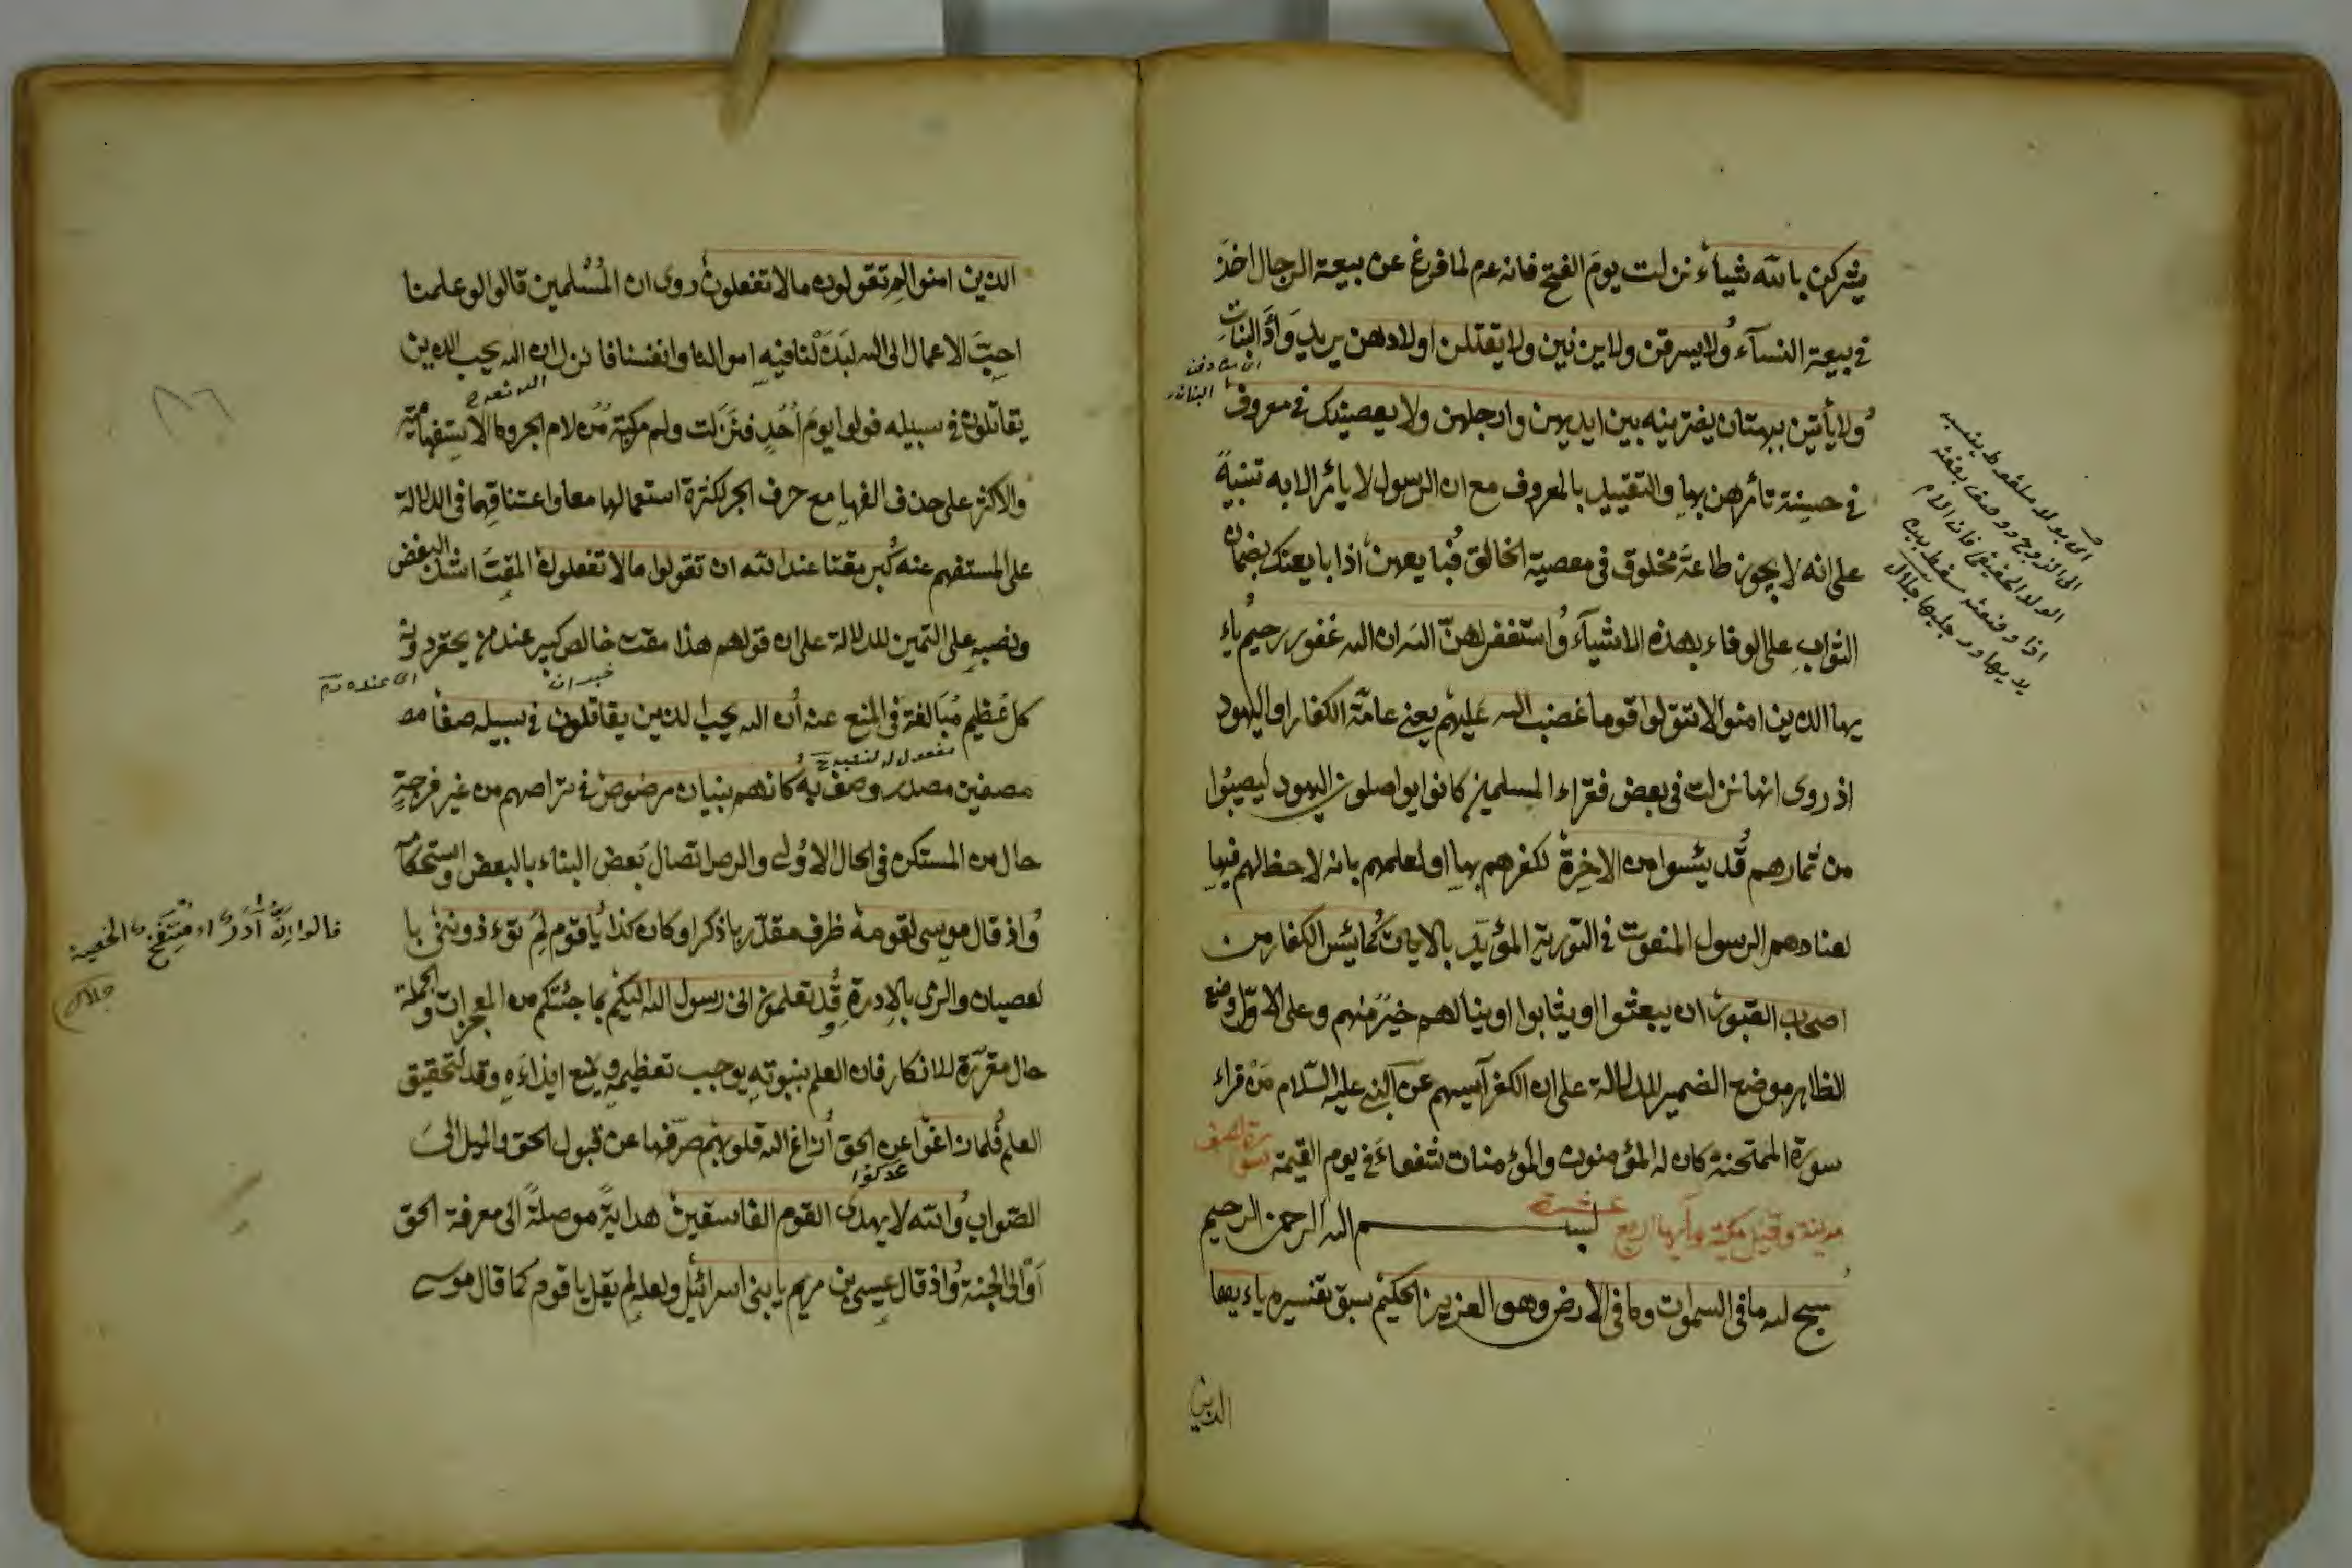 يشركن بالله شيئاء نزلت يوم الفتح فانه عم لما فرغ عن بيعة الرجال اخذ
في بيعة النسآء ولا يسرقن ولا يزنين ولا يقتلن اولادهن يريد وَأدَ البنات
ولا يأتين ببهتان يفترينه بين ايديهن وارجلهن ولا يعصينك في معروف
في حسنة تأمرهن بها والتقييد بالمعروف مع ان الرسول لا يأمر الا به تنبيهً
على انه لا يجوز طاعة مخلوق في معصية الخالق فبايعهن اذا بايعنك بضمان
الثواب على الوفاء بهذه الاشيآء واستغفر لهنّ الله ان الله غفور رحيم ياء
يها الذين امنوا لا تتولوا قوما غضب الله عليهم يعني عامة الكفار او اليهود
اذ روى انها نزلت في بعض فقراء المسلمين كانوا يواصلون اليهود ليصيبوا
من ثمارهم قد يئسوا من الاخرة لكفرهم بها او لعلمهم بانه لا حظ لهم فيها
لعنادهم الرسول المنعوت في التورية المؤيد بالايات كما يئس الكفار من
اصحاب القبور ان يبعثوا او يثابوا او ينالهم خير منهم وعلى الاوّل وضع
الظاهر موضع الضمير للدلالة على ان الكفر آيسهم عن النبي عليه السّلام من قراء
سورة الممتحنة كان له المؤمنون والمؤمنات شفعاء في يوم القيمة سورة الصف
مدنية وقيل مكية وآيها اربع عشرة بسم الله الرحمن الرحيم
سبح لله ما في السموات وما في الارض وهو العزيز الحكيم سبق تفسيره ياء يها
الذين
اى بولد ملقوط ينسب
الى الزوج ووصف بصفة
الولد الحقيقى فان الام
اذا وضعته سقط بين
يديها ورجليها جلال
الذين امنوا لم تقولون ما لا تفعلون روى ان المُسْلمين قالوا لو علمنا
احبّ الاعمال الى الله لبذلنا فيه اموالنا وانفسنا فانزل ان الله يحب الذين
يقاتلون في سبيله فولوا يومَ اُحُدٍ فنَزَلت ولم مركبة من لام الجر وما الاستفهامية
والاكثر على حذف الفها مع حرف الجر لكثرة استعمالها معا واعتناقهما في الدلالة
على المستفهم عنه كبر مقتا عند الله ان تقولوا ما لا تفعلون المقت اشد البغض
ونصبه على التمييز للدلالة على ان قولهم هذا مقت خالص كبير عند من يحقر دونه
خبر ان
كل عظيم مُبَالغة في المنع عنه ان الله يحب الذين يقاتلون في سبيله صفا مص
مصفين مصدر وصف به كانهم بنيان مرصوص في تراصهم من غير فرجةٍ
حال من المستكن في الحال الاولى والرص اتصال بَعض البناء بالبعض واستحكامه
واذ قال موسى لقومه ظرف مقدّر باذكر او كان كذا يا قوم لم تؤذونني با
لعصيان والرمى بالادرة وقد تعلمون انى رسول الله اليكم بما جئتكم من المعجزات والجملة
حال مقرّرة للانكار فان العلم بنبوته يوجب تعظيمه ويمنع ايذاءَه وقد لتحقيق
العلم فلما زاغوا عن الحق ازاغ الله قلوبهم صرّفها عن قبول الحق والميل الىَ
الصّواب والله لا يهدى القوم الفاسقين هدايةً موصلةً الى معرفة الحق
اَوْ الى الجنة واذ قال عيسى بن مريم يا بنى اسرائيل ولعله لم يقل يا قوم كما قال موسى
قالوا انّه آدَرُ اى مُنْتَفِخُ الخصية
جلال